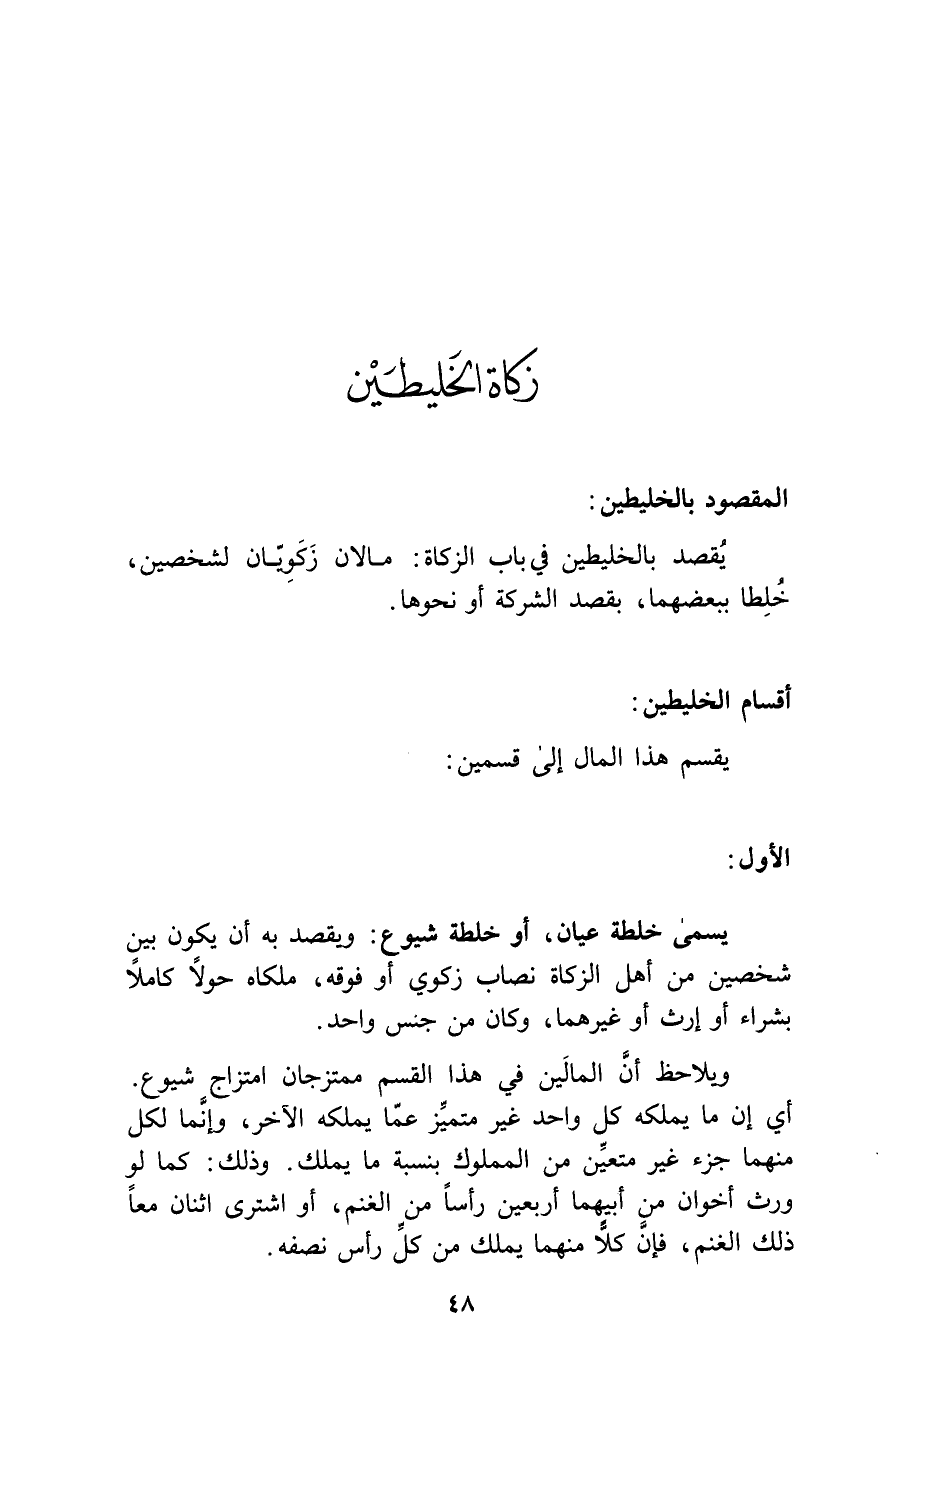 زكاة الخَليطَيْن
المقصود بالخليطين:
يُقصد بالخليطين في باب الزكاة: مالان زَكَوِيّان لشخصين،
خُلِطا ببعضهما، بقصد الشركة أو نحوها.
أقسام الخليطين:
يقسم هذا المال إلىٰ قسمين:
الأول:
يسمىٰ خلطة عيان، أو خلطة شيوع: ويقصد به أن يكون بين
شخصين من أهل الزكاة نصاب زكوي أو فوقه، ملكاه حولاً كاملاً
بشراء أو إرث أو غيرهما، وكان من جنس واحد.
ويلاحظ أنَّ المالَين في هذا القسم ممتزجان امتزاج شيوع.
أي إن ما يملكه كل واحد غير متميِّز عمّا يملكه الآخر، وإنَّما لكل
منهما جزء غير متعيِّن من المملوك بنسبة ما يملك. وذلك: كما لو
ورث أخوان من أبيهما أربعين رأساً من الغنم، أو اشترى اثنان معاً
ذلك الغنم، فإنَّ كلًّا منهما يملك من كلِّ رأس نصفه.
٤٨